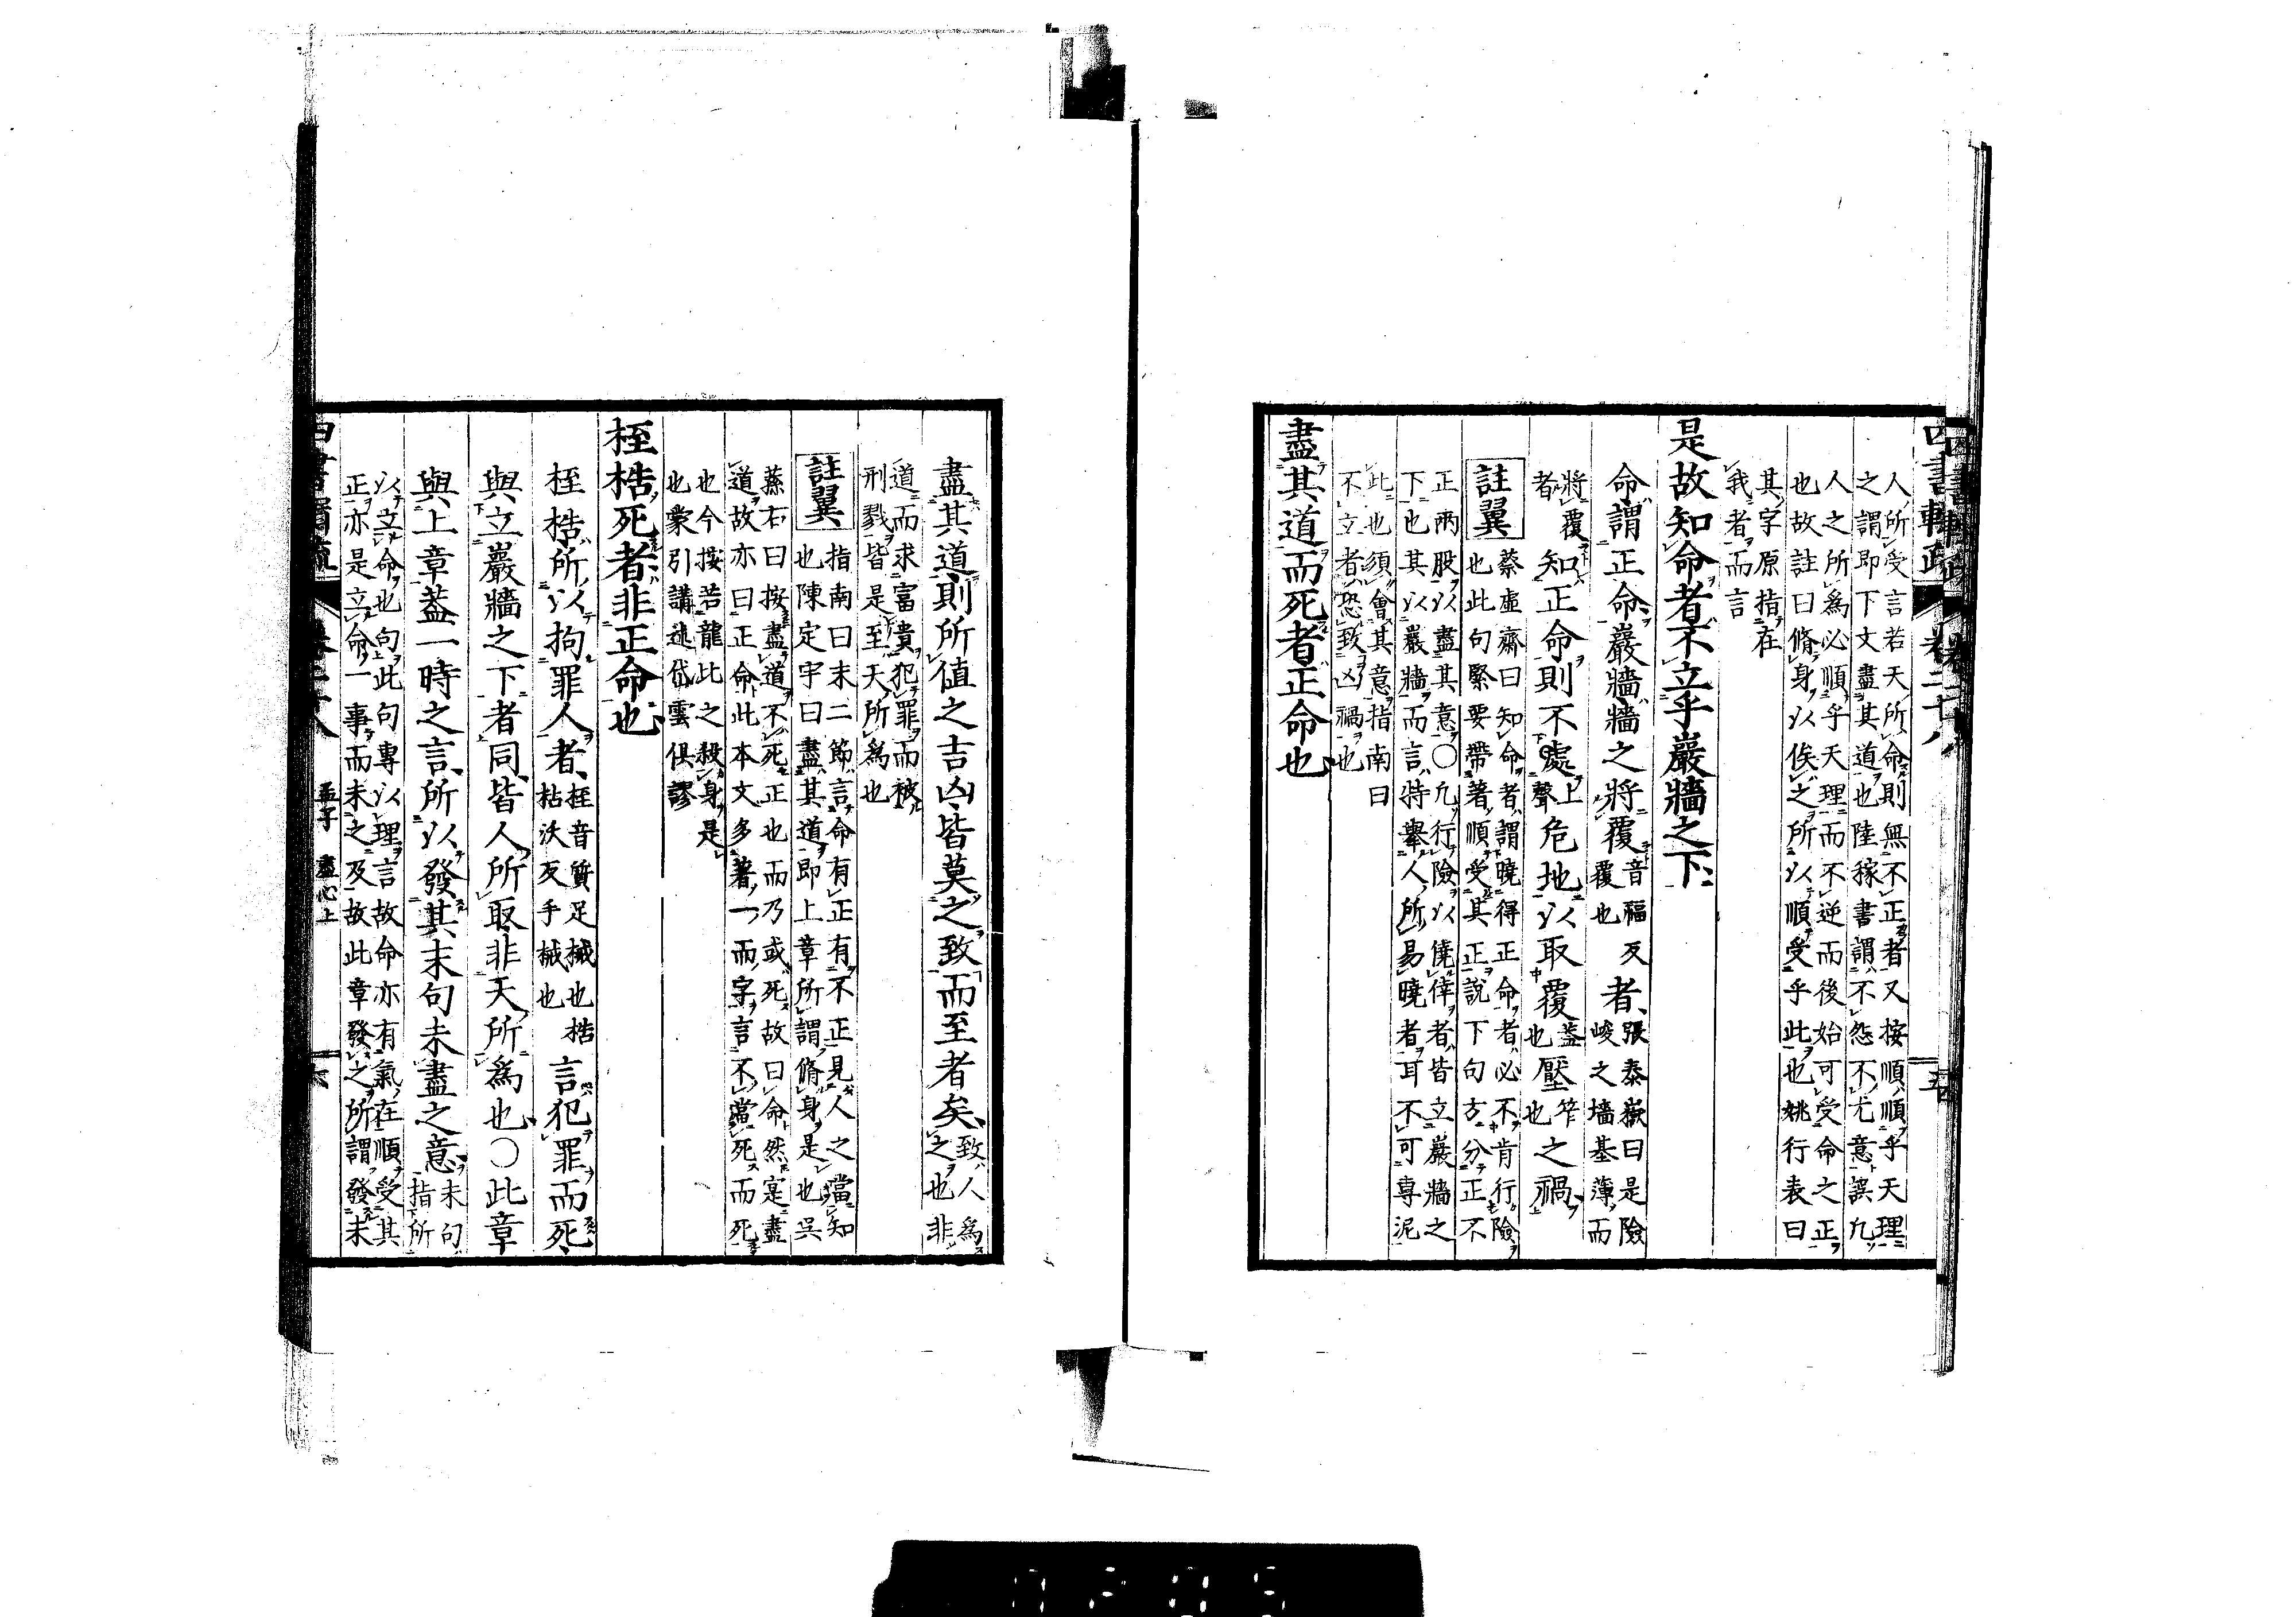 四書輯疏 卷二十八 五
人所受言若天所命則無不正者又按順順乎天理
之謂即下文盡其道也陸稼書謂不怨不尤意誤凡
人之所爲必順乎天理而不逆而後始可受命之正
也故註曰脩身以俟之所以順受乎此也姚行表曰
其字原指在
我者而言
是故知命者不立乎巖牆之下
命謂正命巖牆牆之將覆音福反覆也者張泰嶽曰是險峻之墻基薄而
將覆者知正命則不處上聲危地以取覆蓋也壓笮也之禍
註翼 蔡虛齋曰知命者謂曉得正命者必不肯行險
也此句緊要帶著順受其正說下句方分正不
正兩股以盡其意○凡行險以僥倖者皆立巖牆之
下也其以巖牆而言特舉人所易曉者耳不可專泥
此也須會其意指南曰
不立者恐致凶禍也
盡其道而死者正命也
盡其道則所値之吉凶皆莫之致而至者矣致人爲之也非
道而求富貴犯罪而被
刑戮皆是至天所爲也
註翼 指南曰末二節言命有正有不正見人之當知
也陳定宇曰盡其道即上章所謂脩身是也吳
蓀右曰按盡道不死正也而乃或死故曰命然寔盡
道故亦曰正命此本文多著一而字言不當死而死
也今按若龍此之殺身是
也蒙引講逃岱雲俱謬
桎梏死者非正命也
桎梏所以拘罪人者桎音質足械也梏
梏沃反手械也言犯罪而死
與立巖牆之下者同皆人所取非天所爲也○此章
與上章蓋一時之言所以發其末句未盡之意末句指所
以立命也句此句專以理言故命亦有氣在順受其
正亦是立命一事而未之及故此章發之所謂發未
孟子 盡心上 六